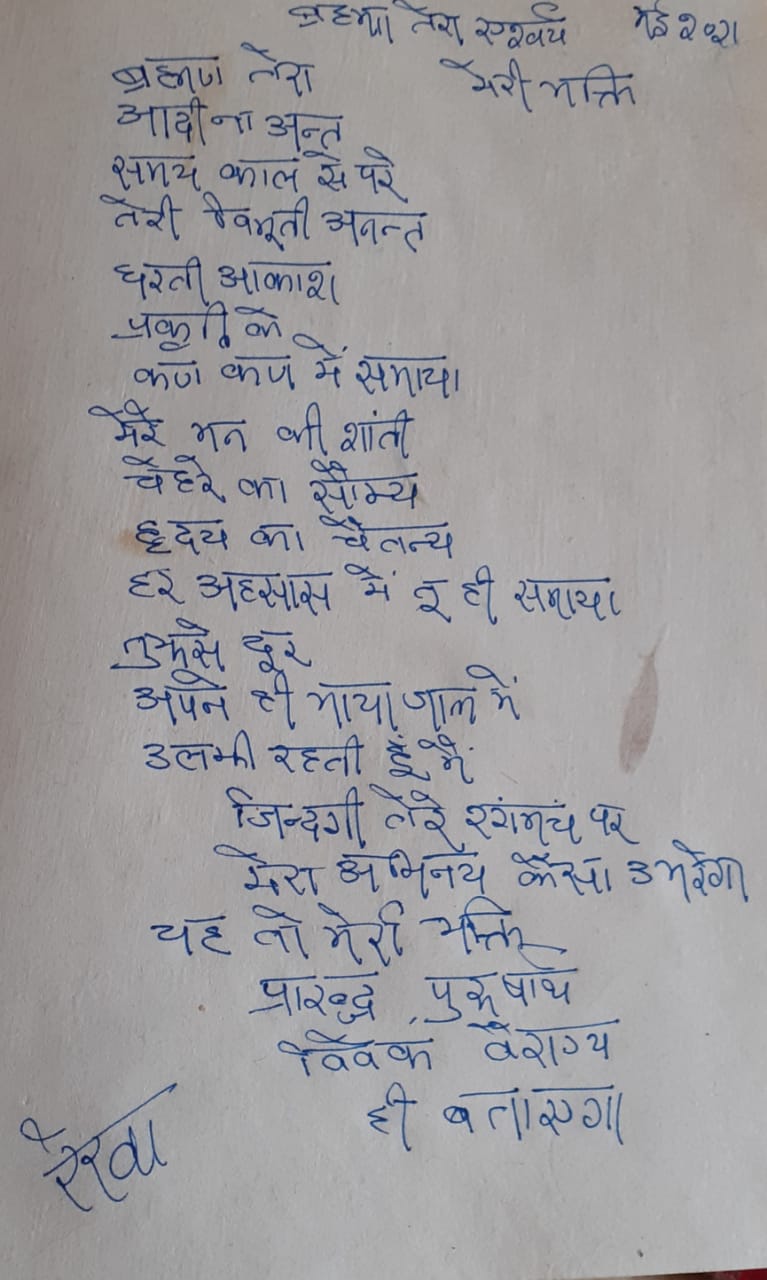 ब्रह्मा तेरा एश्वर्य मई २०२१
मेरी भक्ति
ब्रह्मण तेरा
आदी ना अन्त
समय काल से परे
तेरी विभूती अनन्त
धरती आकाश
प्रकृति के
कण कण में समाया
मेरे मन की शांती
चेहरे का सौम्य
हृदय का चैतन्य
हर अहसास में तू ही समाया
तुझसे दूर
अपने ही माया जाल में
उलझी रहती हूँ मैं
जिन्दगी तेरे रंगमंच पर
मेरा अभिनय कैसा उभरेगा
यह तो मेरी भक्ति
प्रारब्द्ध, पुरूषार्थ
विवेक वैराग्य
ही बताएगा
रेखा